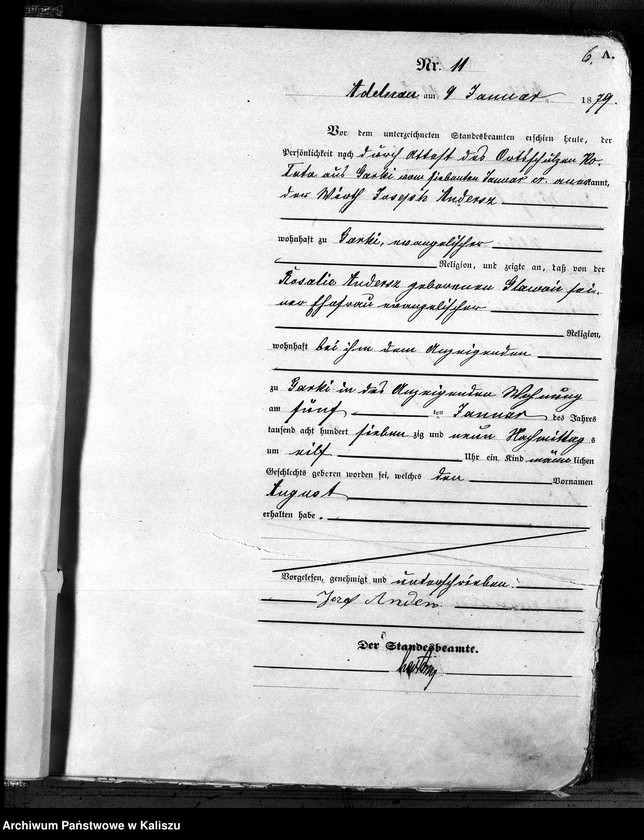 6. A.
Nr. 11
Adelnau am 9 Januar 1879.
Vor dem unterzeichneten Standesbeamten erschien heute, der
Persönlichkeit nach durch Attest des Ortsschulzen Ko-
aus Garki vom siebenten Januar cr. anerkannt,
der Wirth Joseph Andersz
wohnhaft zu Garki, evangelischer
Religion, und zeigte an, daß von der
Rosalie Andersz geborenen sei-
ner Ehefrau evangelischer
Religion,
wohnhaft bei ihm dem Anzeigenden
zu Garki in des Anzeigenden Wohnung
am fünf ten Januar des Jahres
tausend acht hundert sieben zig und neun Nachmittag s
um eilf Uhr ein Kind männlichen
Geschlechts geboren worden sei, welches den Vornamen
August
erhalten habe.
Vorgelesen, genehmigt und unterschrieben:
Der Standesbeamte.
Archiwum Państwowe w Kaliszu